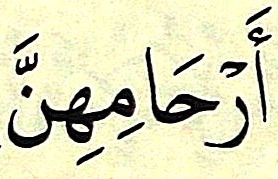 أَرْحَامِهِنَّ